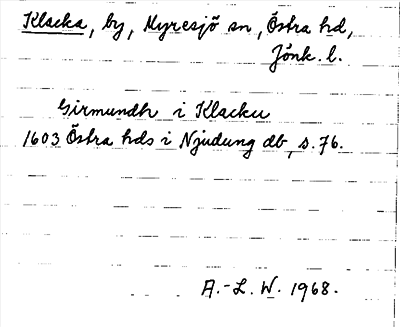 Klacka, by, Myresjö sn, Östra hd,
Jönk. l.
Girmundh i Klacku
1603 Östra hds i Njudung db, s. 76.
A.-L. W. 1968.